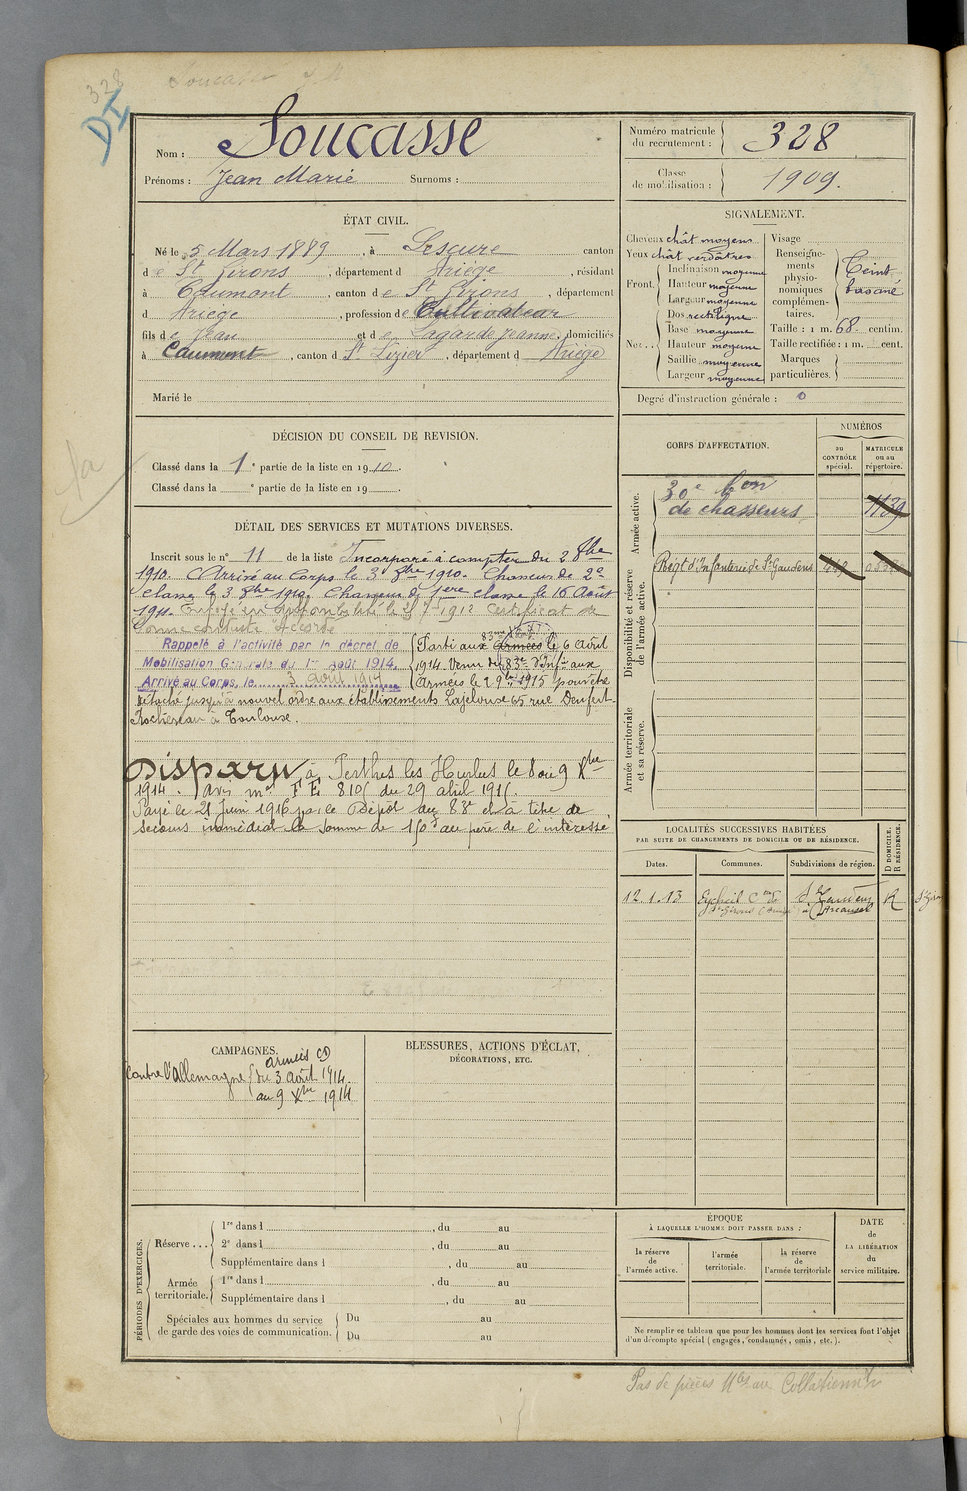 328
Soucasse J M
DI
Nom : Soucasse
Prénoms : Jean Marie Surnoms :
Numéro matricule du recrutement : 328
Classe de mobilisation : 1909.
ÉTAT CIVIL.
Né le 5 Mars 1889, à Lescure canton
de St Girons, département d Ariège, résidant
à Caumont, canton de St Girons, département
d Ariège, profession de Cultivateur
fils de Jean et de Lagarde Jeanne, domiciliés
à Caumont, canton d St Lizier, département d Ariège
Marié le
SIGNALEMENT.
Cheveux chât moyens
Yeux chât verdâtres
Front. Inclinaison moyenne
Hauteur moyenne
Largeur moyenne
Nez.. Dos rectiligne
Base moyenne
Hauteur moyenne
Saillie moyenne
Largeur moyenne
Visage
Renseignements physionomiques complémentaires. Teint basané
Taille : 1 m. 68. centim.
Taille rectifiée : 1 m. cent.
Marques particulières.
Degré d'instruction générale : 0
DÉCISION DU CONSEIL DE REVISION.
Classé dans la 1e partie de la liste en 1910.
Classé dans la e partie de la liste en 19
DÉTAIL DES SERVICES ET MUTATIONS DIVERSES.
Inscrit sous le n° 11 de la liste Incorporé à compter du 2 8bre
1910. Arrivé au Corps le 3 8bre 1910. Chasseur de 2e
classe le 3 8bre 1910. Chasseur de 1ère classe le 16 Août
1911. Envoyé en disponibilité le 1912 Certificat de
bonne conduite "Accordé"
Rappelé à l'activité par le décret de
Mobilisation Générale du 1er Août 1914.
Arrivé au Corps, le 3 Août 1914
Parti aux Armées le 6 Août
1914. Venu du 83e d'Infie aux
Armées le 2 9bre 1915 pour être
détaché jusqu'à nouvel ordre aux établissements Lajelouse 65 rue Denfert
Rochereau à Toulouse.
Disparu à Perthes les Hurlus le 8 ou 9 Xbre
1914. Avis mel FE 8105 du 29 avril 1915.
Payé le 21 Juin 1916 par le Dépôt du 88e et à titre de
secours immédiat la somme de 150f au père de l'intéressé
CORPS D'AFFECTATION.
NUMÉROS
au CONTRÔLE spécial.
MATRICULE ou au répertoire.
Armée active.
30e Bon
de chasseurs
1139
Disponibilité et réserve de l'armée active.
Régt d'Infanterie de St Gaudens
Armée territoriale et sa réserve.
LOCALITÉS SUCCESSIVES HABITÉES
PAR SUITE DE CHANGEMENTS DE DOMICILE OU DE RÉSIDENCE.
Dates.
Communes.
Subdivisions de région.
D DOMICILE. R RÉSIDENCE.
12.1.13 Eycheil Con de St Gaudens R
St Girons
CAMPAGNES.
Contre l'Allemagne
armées CD
du 3 Août 1914
au 9 Xbre 1914
BLESSURES, ACTIONS D'ÉCLAT,
DÉCORATIONS, ETC.
PÉRIODES D'EXERCICES.
Réserve ... 1re dans l , du au
2e dans l , du au
Supplémentaire dans l , du au
Armée territoriale. 1re dans l , du au
Supplémentaire dans l , du au
Spéciales aux hommes du service de garde des voies de communication. Du au
Du au
ÉPOQUE
À LAQUELLE L'HOMME DOIT PASSER DANS :
la réserve de l'armée active.
l'armée territoriale.
la réserve de l'armée territoriale
DATE de LA LIBÉRATION du service militaire.
Ne remplir ce tableau que pour les hommes dont les services font l'objet
d'un décompte spécial (engagés, condamnés, omis, etc.).
Pas de pièces